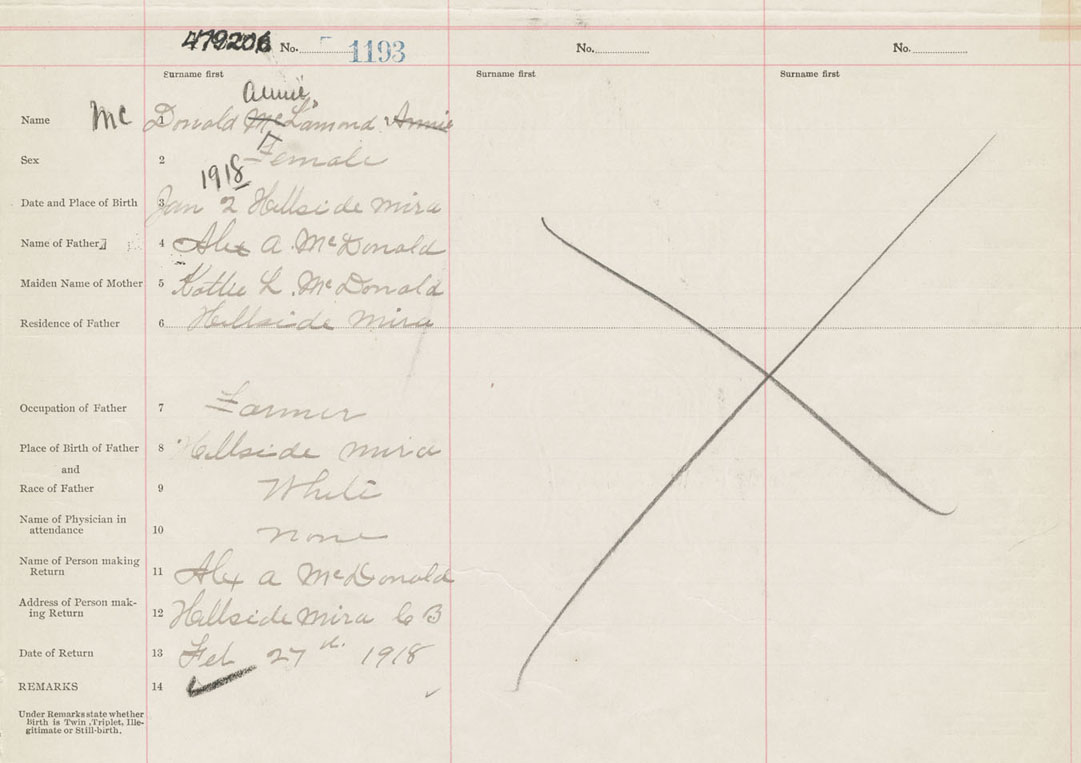 479206 No. 1193 No. No.
Surname first Surname first Surname first
Annie,
Name Mc 1 Donald Mc Lamond Annie
Sex 2 Female
1918
Date and Place of Birth 3 Jan 2 Hillside Mira
Name of Father 4 Alex A. McDonald
Maiden Name of Mother 5 Katlie L. McDonald
Residence of Father 6 Hillside Mira
Occupation of Father 7 Farmer
Place of Birth of Father 8 Hillside Mira
and
Race of Father 9 White
Name of Physician in
attendance 10 None
Name of Person making
Return 11 Alex A McDonald
Address of Person mak-
ing Return 12 Hillside Mira C B
Date of Return 13 Feb 27th 1918
REMARKS 14
Under Remarks state whether
Birth is Twin, Triplet, Ille-
gitimate or Still-birth.